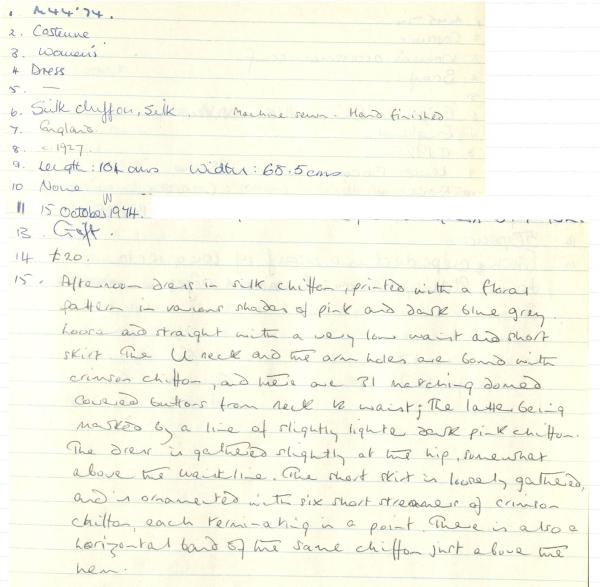 1. A44'74.
2. Costume
3. Women's
4 Dress
5. —
6. Silk chiffon, silk. Machine sewn. Hand finished
7. England
8. c.1927.
9. Length: 104 cms Width: 68.5 cms
10 None
11 15 October 1974.
13. Gift.
14 £20.
15. Afternoon dress in silk chiffon, printed with a floral
pattern in various shades of pink and dark blue grey.
Loose and straight with a very low waist and short
skirt. The U neck and the arm holes are bound with
crimson chiffon, and there are 31 matching domed
covered buttons from neck to waist; The latter being
marked by a line of slightly lighter dark pink chiffon.
The dress is gathered slightly at the hip, somewhat
above the waistline. The short skirt is loosely gathered,
and is ornamented with six short streamers of crimson
chiffon, each terminating in a point. There is also a
horizontal band of the same chiffon just above the
hem.